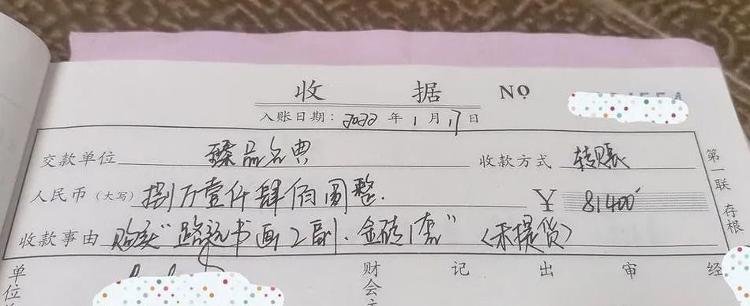 收 据 NO
入账日期：2022 年 1 月 17 日
交款单位 臻品名典 收款方式 转账
人民币（大写） 捌万壹仟肆佰圆整. ￥ 81400
收款事由 购买"路远书画2副. 金砖1套" （未提货）
第一联 存根
单位 财会 记 出 审 经